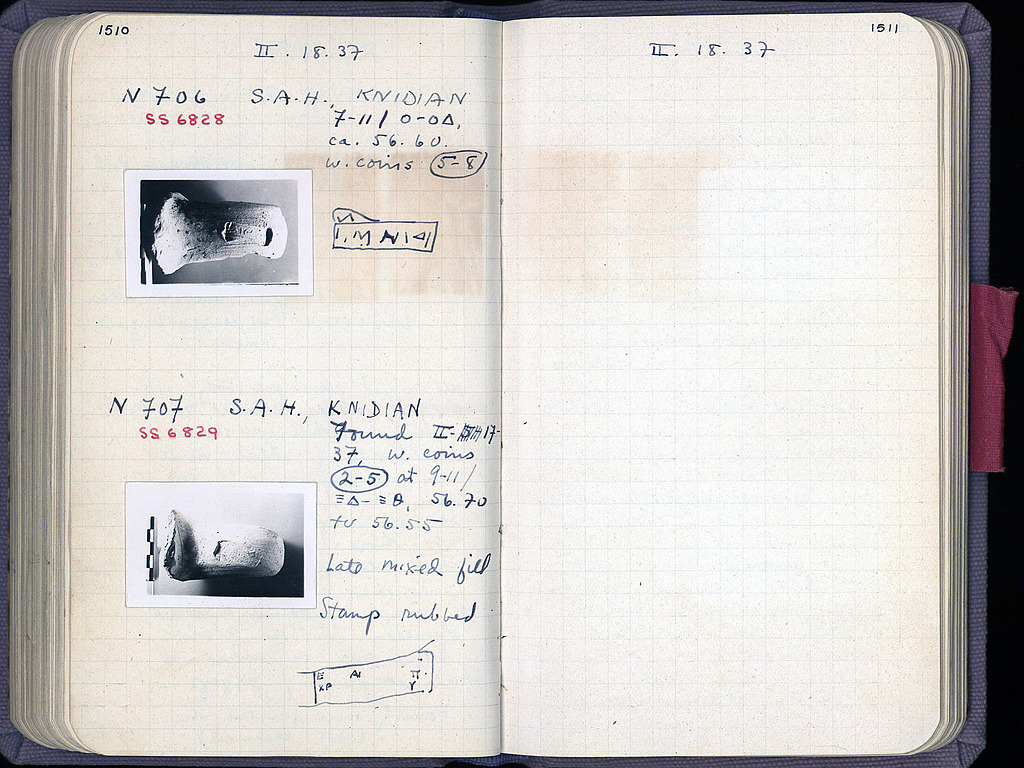 1510
II. 18. 37
N 706 S.A.H., KNIDIAN
SS 6828
7-11/ Ο-ΟΔ,
ca. 56.60.
w. coins 5-8
N 707 S.A.H., KNIDIAN
SS 6829
Found II-17-
37, w. coins
2-5 at 9-11/
ΞΔ-ΞΘ, 56.70
to 56.55
Late mixed fill
Stamp rubbed
Ε ΑΙ Π
ΚΡ Υ
1511
II. 18. 37